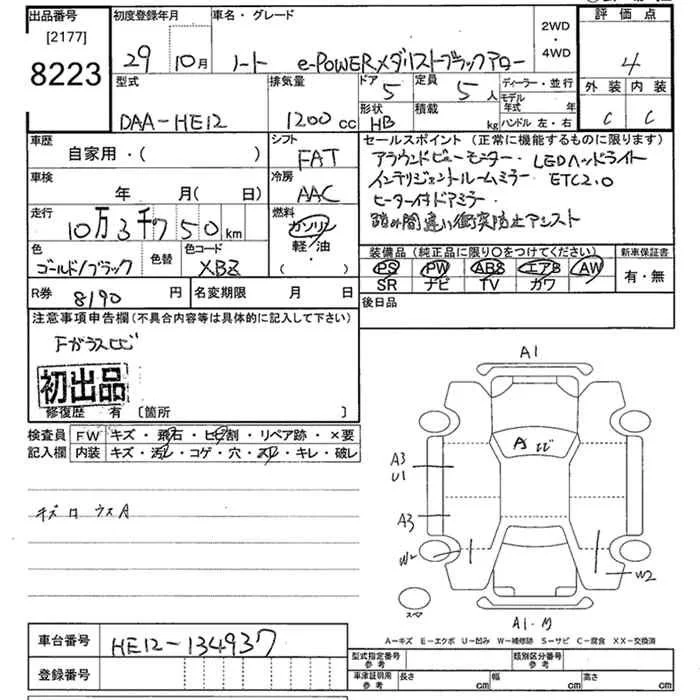 出品番号
[2177]
8223
初度登録年月
29年 10月
車名・グレード
ノート e-POWERメダリストブラックアロー
2WD
・
4WD
評価点
4
外装 内装
C C
型式
DAA-HE12
排気量
1200cc
ドア
5
定員
5人
ディーラー・並行
モデル年式 年
形状
HB
積載
kg
ハンドル 左・右
車歴
自家用・( )
シフト
FAT
セールスポイント(正常に機能するものに限ります)
アラウンドビューモニター・LEDヘッドライト
インテリジェントルームミラー・ETC2.0
ヒーター付ドアミラー
踏み間違い衝突防止アシスト
車検
年 月( 日)
冷房
AAC
走行
10万3千750km
燃料
ガソリン
軽・油
・( )
色
ゴールド/ブラック
色替
色コード
XBZ
装備品(純正品に限り〇をつけてください)
PS PW ABS エアB AW
SR ナビ TV カワ
新車保証書
有・無
R券
8190円
名変期限 月 日
後日品
注意事項申告欄(不具合内容等は具体的に記入して下さい)
Fガラスヒビ
初出品
修復歴 有 [箇所 ]
検査員記入欄
FW キズ・飛石・ヒビ割・リペア跡・×要
内装 キズ・汚レ・コゲ・穴・スレ・キレ・破レ
キズ ロ ウスA
A1
A ヒビ
A3
U1
A3
W2
W2
スペア
A1・M
A-キズ E-エクボ U-凹み W-補修跡 S-サビ C-腐食 XX-交換済
車台番号
HE12-134937
登録番号
型式指定番号
参考
類別区分番号
参考
車津証明用
参考
長さ cm
幅 cm
高さ cm